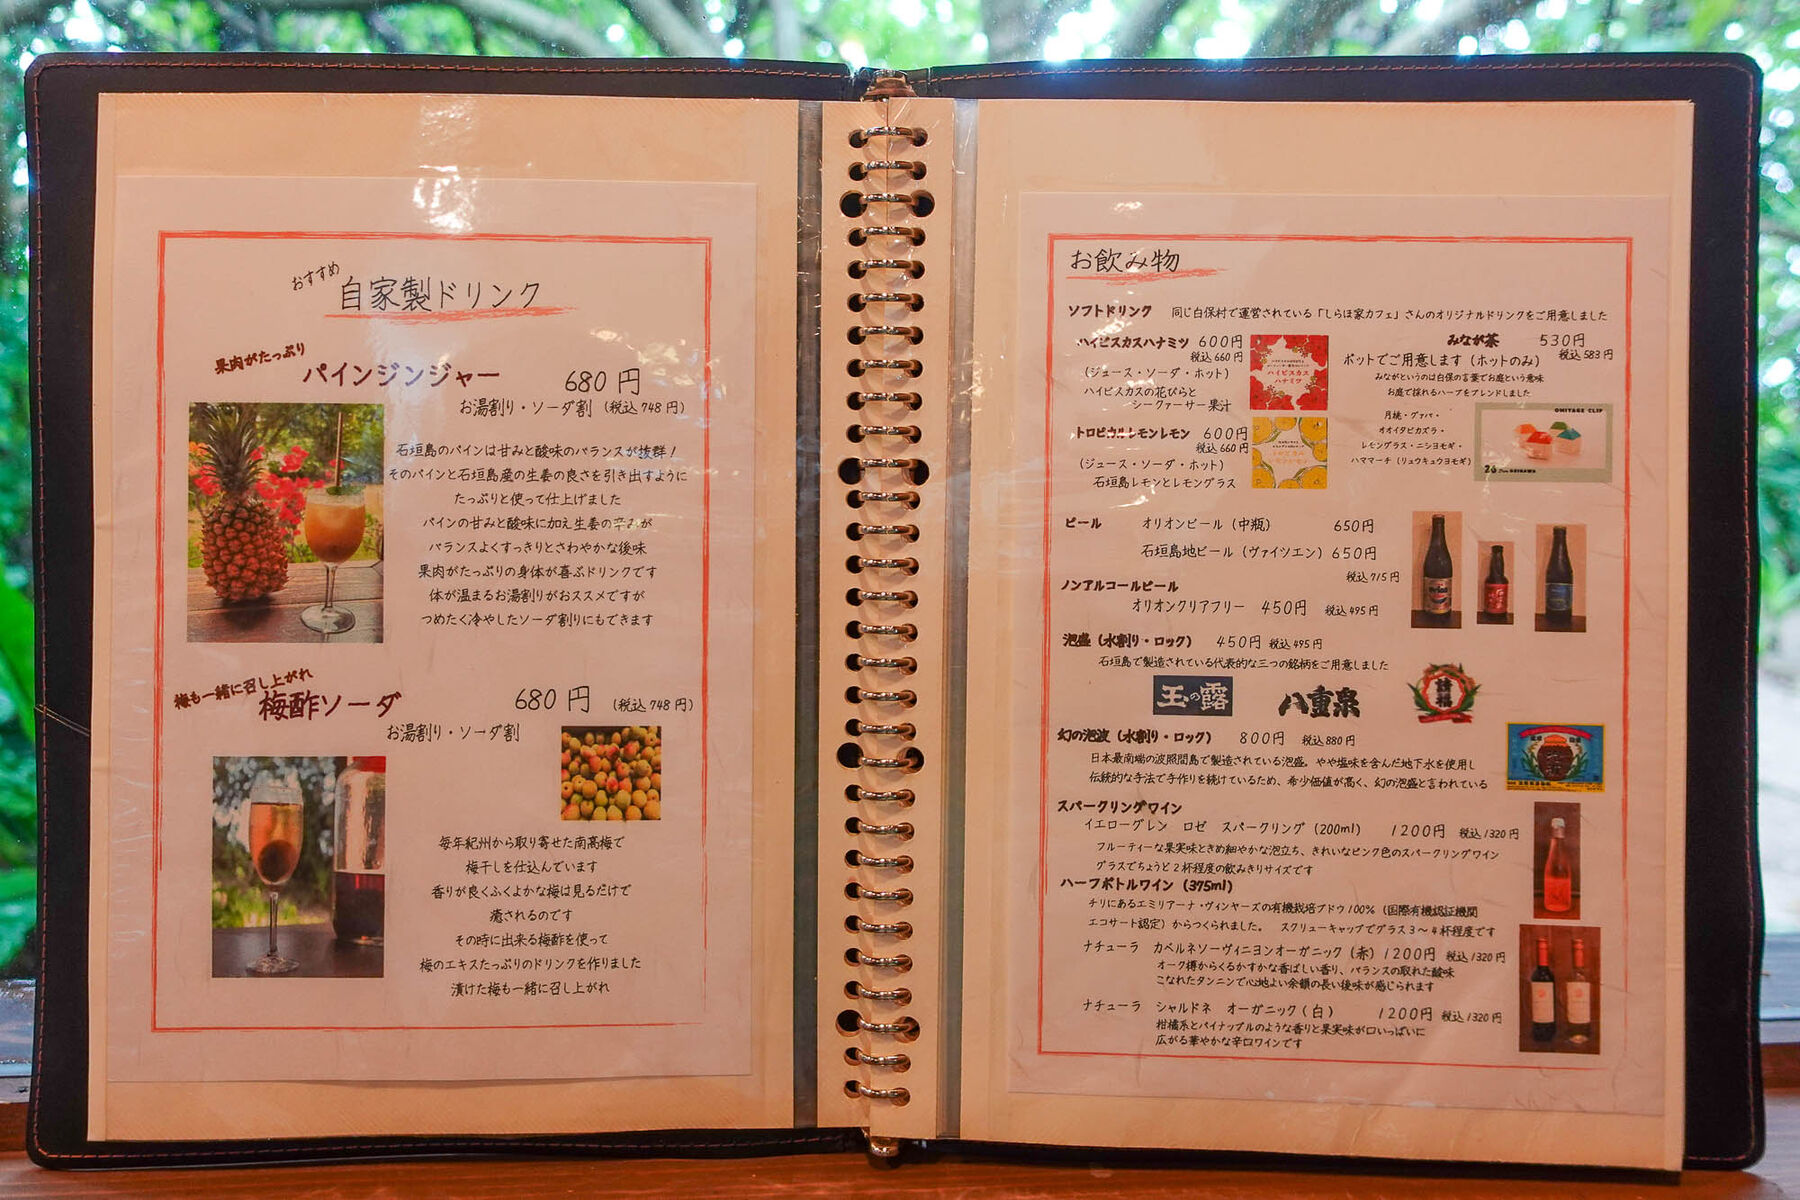 おすすめ
自家製ドリンク
果肉がたっぷり
パインジンジャー 680円
お湯割り・ソーダ割 (税込748円)
石垣島のパインは甘みと酸味のバランスが抜群!
そのパインと石垣島産の生姜の良さを引き出すように
たっぷりと使って仕上げました
パインの甘みと酸味に加え生姜の辛みが
バランスよくすっきりとさわやかな後味
果肉がたっぷりの身体が喜ぶドリンクです
体が温まるお湯割りがおススメですが
つめたく冷やしたソーダ割りにもできます
梅も一緒に召し上がれ
梅酢ソーダ 680円 (税込748円)
お湯割り・ソーダ割
毎年紀州から取り寄せた南高梅で
梅干しを仕込んでいます
香りが良くふくよかな梅は見るだけで
癒されるのです
その時に出来る梅酢を使って
梅のエキスたっぷりのドリンクを作りました
漬けた梅も一緒に召し上がれ
お飲み物
ソフトドリンク 同じ白保村で運営されている「しらほ家カフェ」さんのオリジナルドリンクをご用意しました
ハイビスカスハナミツ 600円
税込660円
(ジュース・ソーダ・ホット)
ハイビスカスの花びらと
シークァーサー果汁
ハイビスカス
ハナミツ
トロピカルレモンレモン 600円
税込660円
(ジュース・ソーダ・ホット)
石垣島レモンとレモングラス
みなが茶 530円
税込583円
ポットでご用意します(ホットのみ)
みながというのは白保の言葉でお庭という意味
お庭で採れるハーブをブレンドしました
月桃・グァバ・
オオイタビカズラ・
レモングラス・ニシヨモギ・
ハママーチ(リュウキュウヨモギ)
OMIYAGE CLIP
ビール オリオンビール(中瓶) 650円
石垣島地ビール(ヴァイツエン)650円
税込715円
ノンアルコールビール
オリオンクリアフリー 450円 税込495円
泡盛(水割り・ロック) 450円 税込495円
石垣島で製造されている代表的な三つの銘柄をご用意しました
玉の露
八重泉
請福
幻の泡波(水割り・ロック) 800円 税込880円
日本最南端の波照間島で製造されている泡盛。やや塩味を含んだ地下水を使用し
伝統的な手法で手作りを続けているため、希少価値が高く、幻の泡盛と言われている
スパークリングワイン
イエローグレン ロゼ スパークリング(200ml) 1200円 税込1320円
フルーティーな果実味ときめ細やかな泡立ち、きれいなピンク色のスパークリングワイン
グラスでちょうど2杯程度の飲みきりサイズです
ハーフボトルワイン(375ml)
チリにあるエミリアーナ・ヴィンヤーズの有機栽培ブドウ100%(国際有機認証機関
エコサート認定)からつくられました。 スクリューキャップでグラス3〜4杯程度です
ナチューラ カベルネソーヴィニヨンオーガニック(赤)1200円 税込1320円
オーク樽からくるかすかな香ばしい香り、バランスの取れた酸味
こなれたタンニンで心地よい余韻の長い後味が感じられます
ナチューラ シャルドネ オーガニック(白) 1200円 税込1320円
柑橘系とパイナップルのような香りと果実味が口いっぱいに
広がる華やかな辛口ワインです